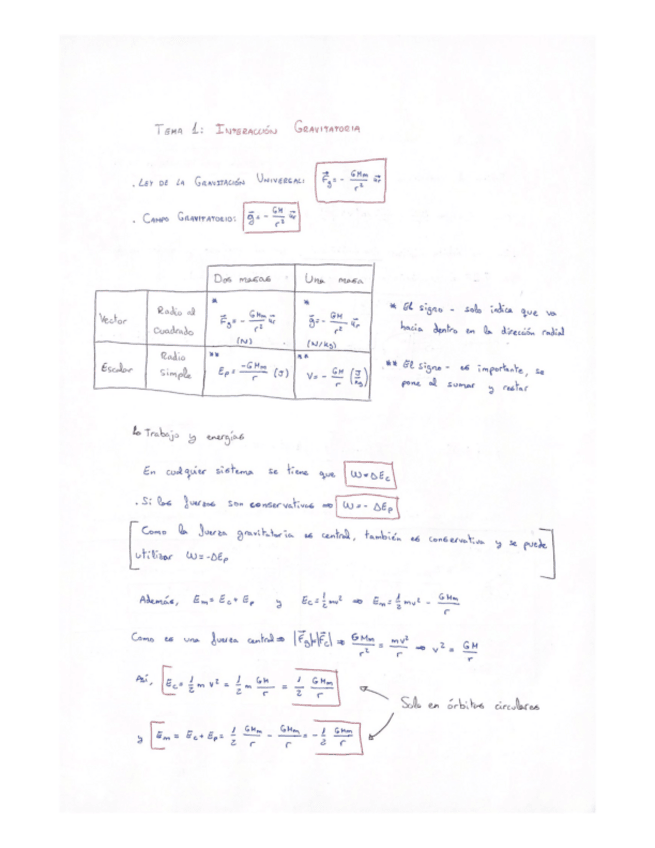 TEMA 1: INTERACCIÓN GRAVITATORIA
. LEY DE LA GRAVITACIÓN UNIVERSAL: F⃗g = - GMm/r² u⃗r
. CAMPO GRAVITATORIO: g⃗ = - GM/r² u⃗r
Dos masas Una masa
Vector Radio al cuadrado * F⃗g = - GMm/r² u⃗r (N) * g⃗ = - GM/r² u⃗r (N/kg)
Escalar Radio simple ** Ep = -GMm/r (J) ** V = - GM/r (J/kg)
* El signo - solo indica que va
hacia dentro en la dirección radial
** El signo - es importante, se
pone al sumar y restar
↳ Trabajo y energías
En cualquier sistema se tiene que W = ΔEc
. Si las fuerzas son conservativas ⇒ W = - ΔEp
[Como la fuerza gravitatoria es central, también es conservativa y se puede
utilizar W = -ΔEp]
Además, Em = Ec + Ep y Ec = 1/2 mv² ⇒ Em = 1/2 mv² - GMm/r
Como es una fuerza central ⇒ |F⃗g|=|F⃗c| ⇒ GMm/r² = mv²/r ⇒ v² = GM/r
Así, [Ec = 1/2 m v² = 1/2 m GM/r = 1/2 GMm/r]
Solo en órbitas circulares
y [Em = Ec + Ep = 1/2 GMm/r - GMm/r = - 1/2 GMm/r]